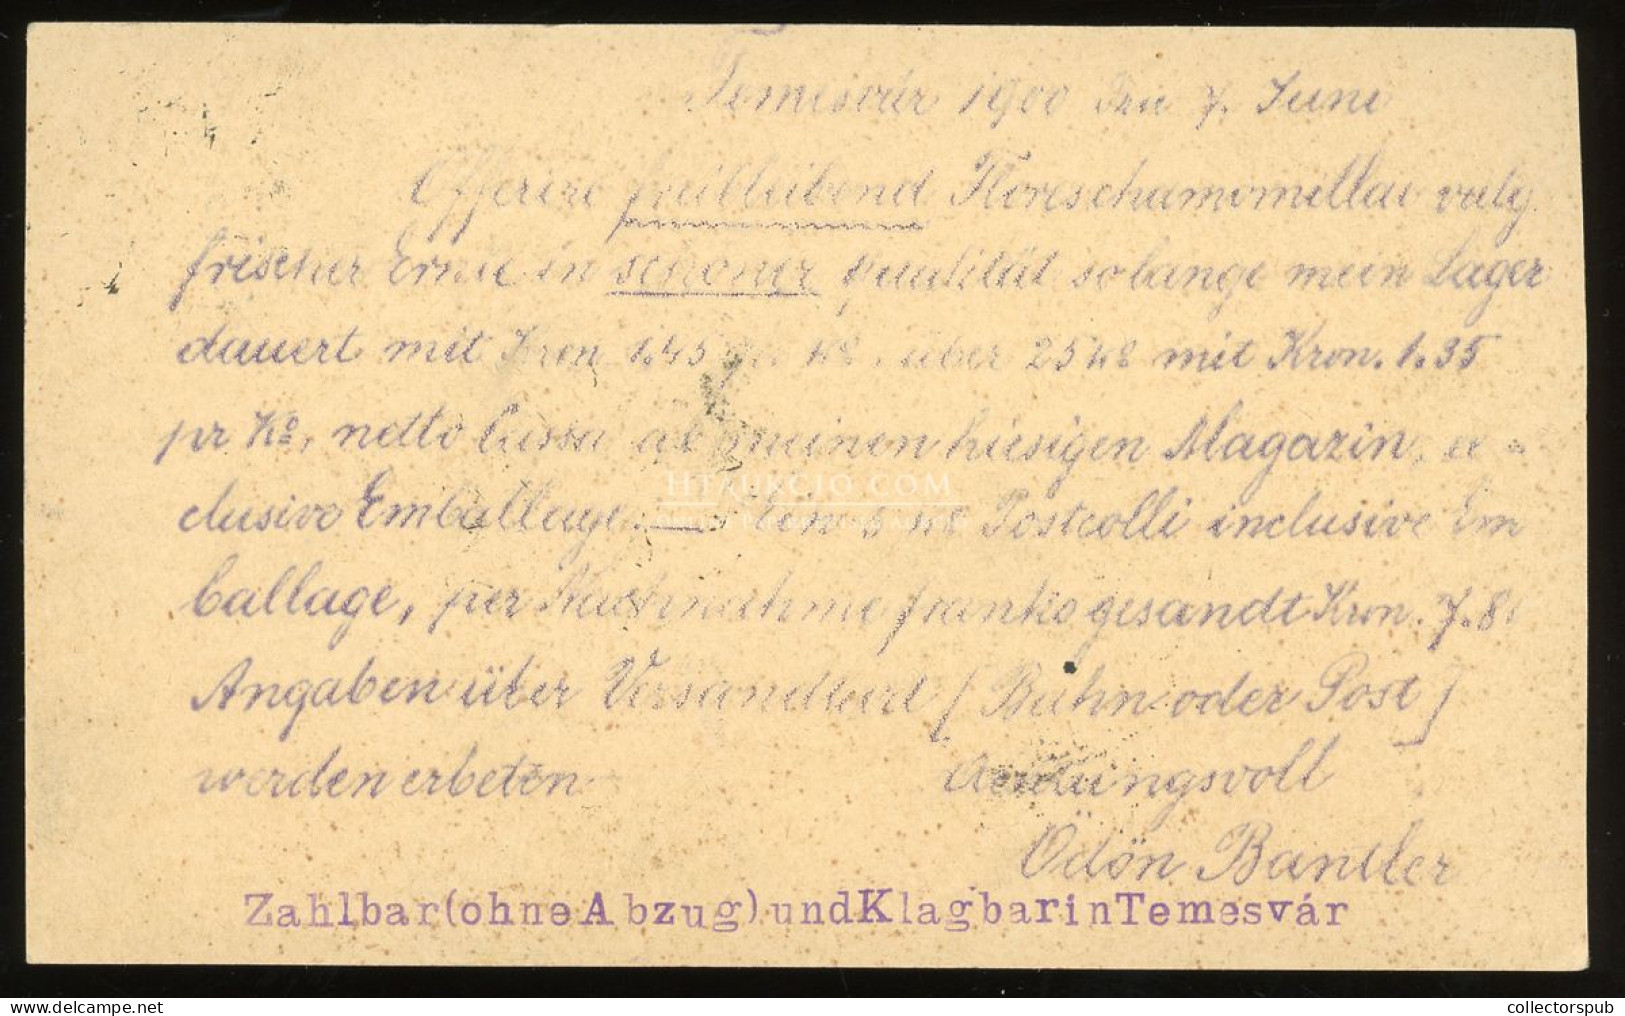 Temesvár 1900 den 7. Juni
Offerire freibleibend Flores chamomillae vulg.
frischer Ernte in schöner Qualität solange mein Lager
dauert mit Kron 1.45 pr K⁰, über 25 K⁰ mit Kron. 1.35
pr K⁰, netto Cassa ab meinen hiesigen Magazin, ex-
clusive Emballage. — Ein 5 K⁰ Postcolli inclusive Em
ballage, per Nachnahme franko gesandt Kron. 7.80
Angaben über Versandtart [Bahn oder Post]
werden erbeten. Achtungsvoll
Ödön Bandler
Zahlbar (ohne Abzug) und Klagbar in Temesvár
HTAUKCIO.COM
collectorspub